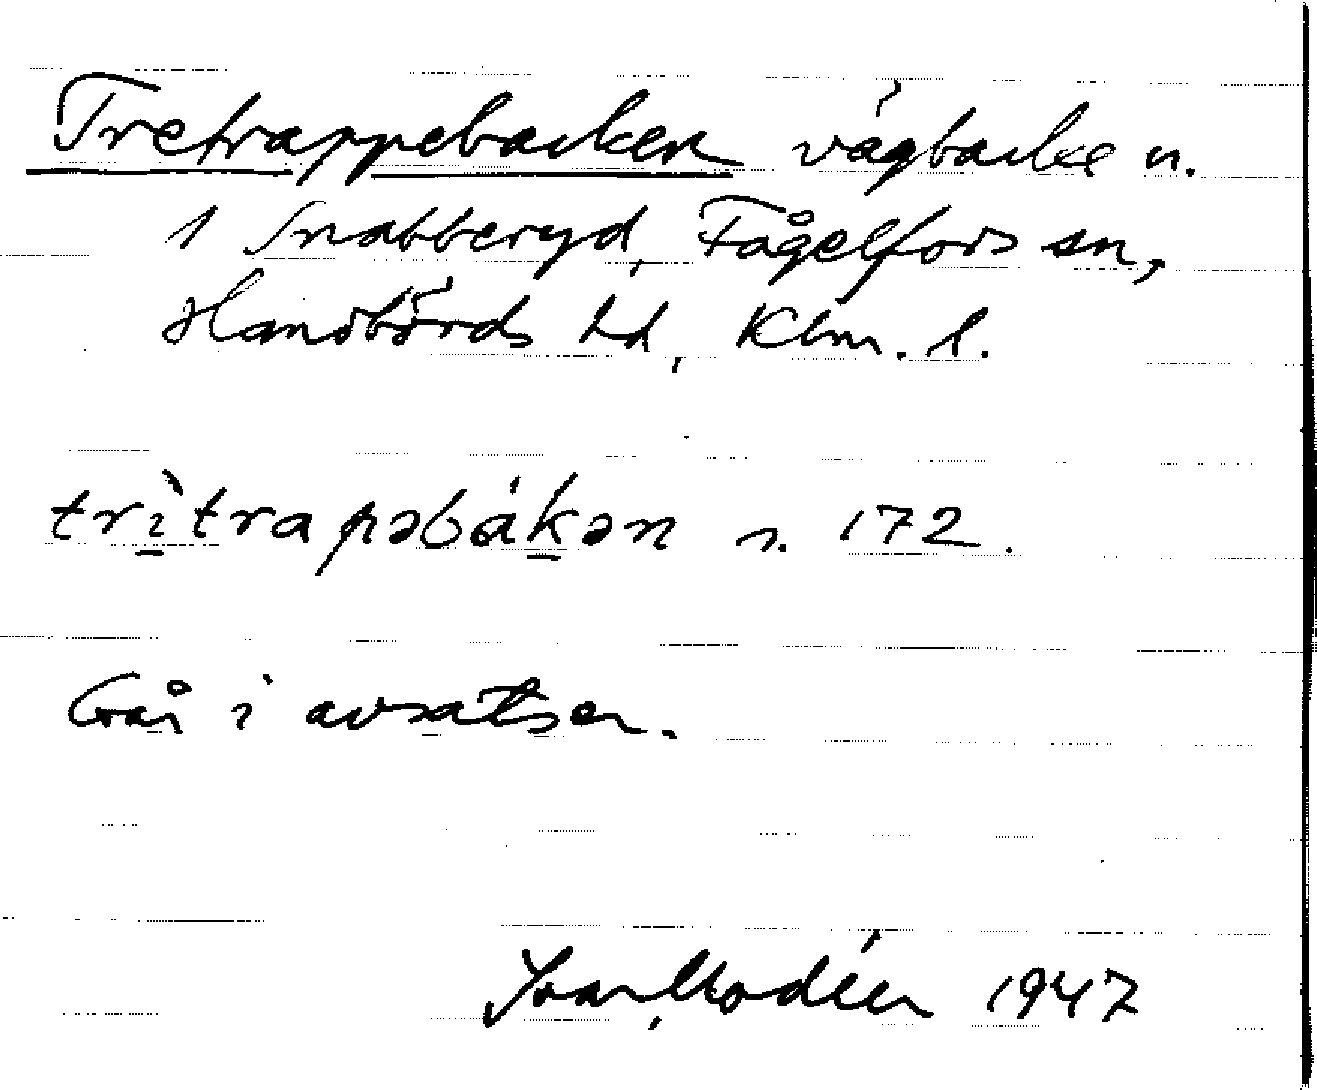 Tretrappebacken vägbacke n.
1 Snabberyd, Fågelfors sn,
Handbörds hd, Klm. l.
trìtrapəbákən s. 172.
Går i avsatser.
Ivar Modéer 1947